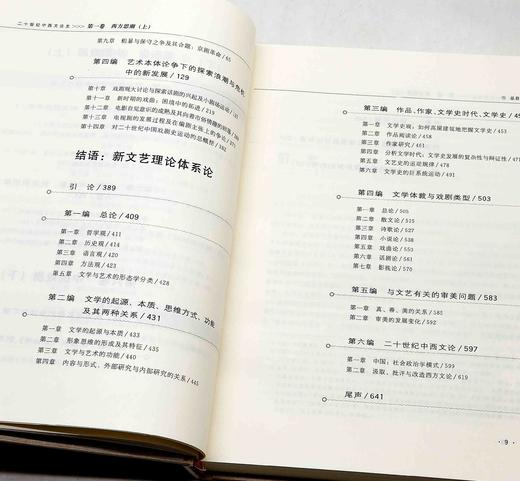 二十世纪中西文论史>>>第一卷 西方思潮(上)
第九章 粗暴与保守之争及其合题：京剧革命/65
第四编 艺术本体论争下的探索浪潮与危机
中的新发展/129
第十章 戏剧观大讨论与探索话剧的兴起及小剧场运动
第十一章 新时期的戏曲：困境中的拓进/219
第十二章 电影自觉意识的成熟及其向着市俗情趣的转移
第十三章 电视剧的发展过程及在编剧主张上的争论
第十四章 对二十世纪中国戏剧史运动的总概括/382
结语：新文艺理论体系论
引 论/389
第一编 总论/409
第一章 哲学观/411
第二章 历史观/414
第三章 语言观/420
第四章 方法观/423
第五章 文学与艺术的形态学分类/428
第二编 文学的起源、本质、思维方式、功能
及其两种关系/431
第一章 文学的起源与本质/433
第二章 形象思维的形成及其特征/435
第三章 文学与艺术的功能/440
第四章 内容与形式、外部研究与内部研究的关系/445
第三编 作品、作家、文学史时代、文学史/
第一章 文学史观：如何高屋建瓴地把握文学史/453
第二章 作品阅读论/458
第三章 作家研究/
第四章 分析文学时代：文学史发展的复杂性与辩证性/471
第五章 文艺史的运动规律/478
第六章 文学史的巨系统运动/491
第四编 文学体裁与戏剧类型/503
第一章 总论/505
第二章 散文论/505
第三章 诗歌论/527
第四章 小说论/538
第五章 戏曲论/553
第六章 话剧论/561
第七章 影视论/570
第五编 与文艺有关的审美问题/583
第一章 真、善、美的关系/585
第二章 审美的发展变化/592
第六编 二十世纪中西文论/597
第一章 中国：社会政治学模式/599
第二章 汲取、批评与改造西方文论/619
尾声/641
·9